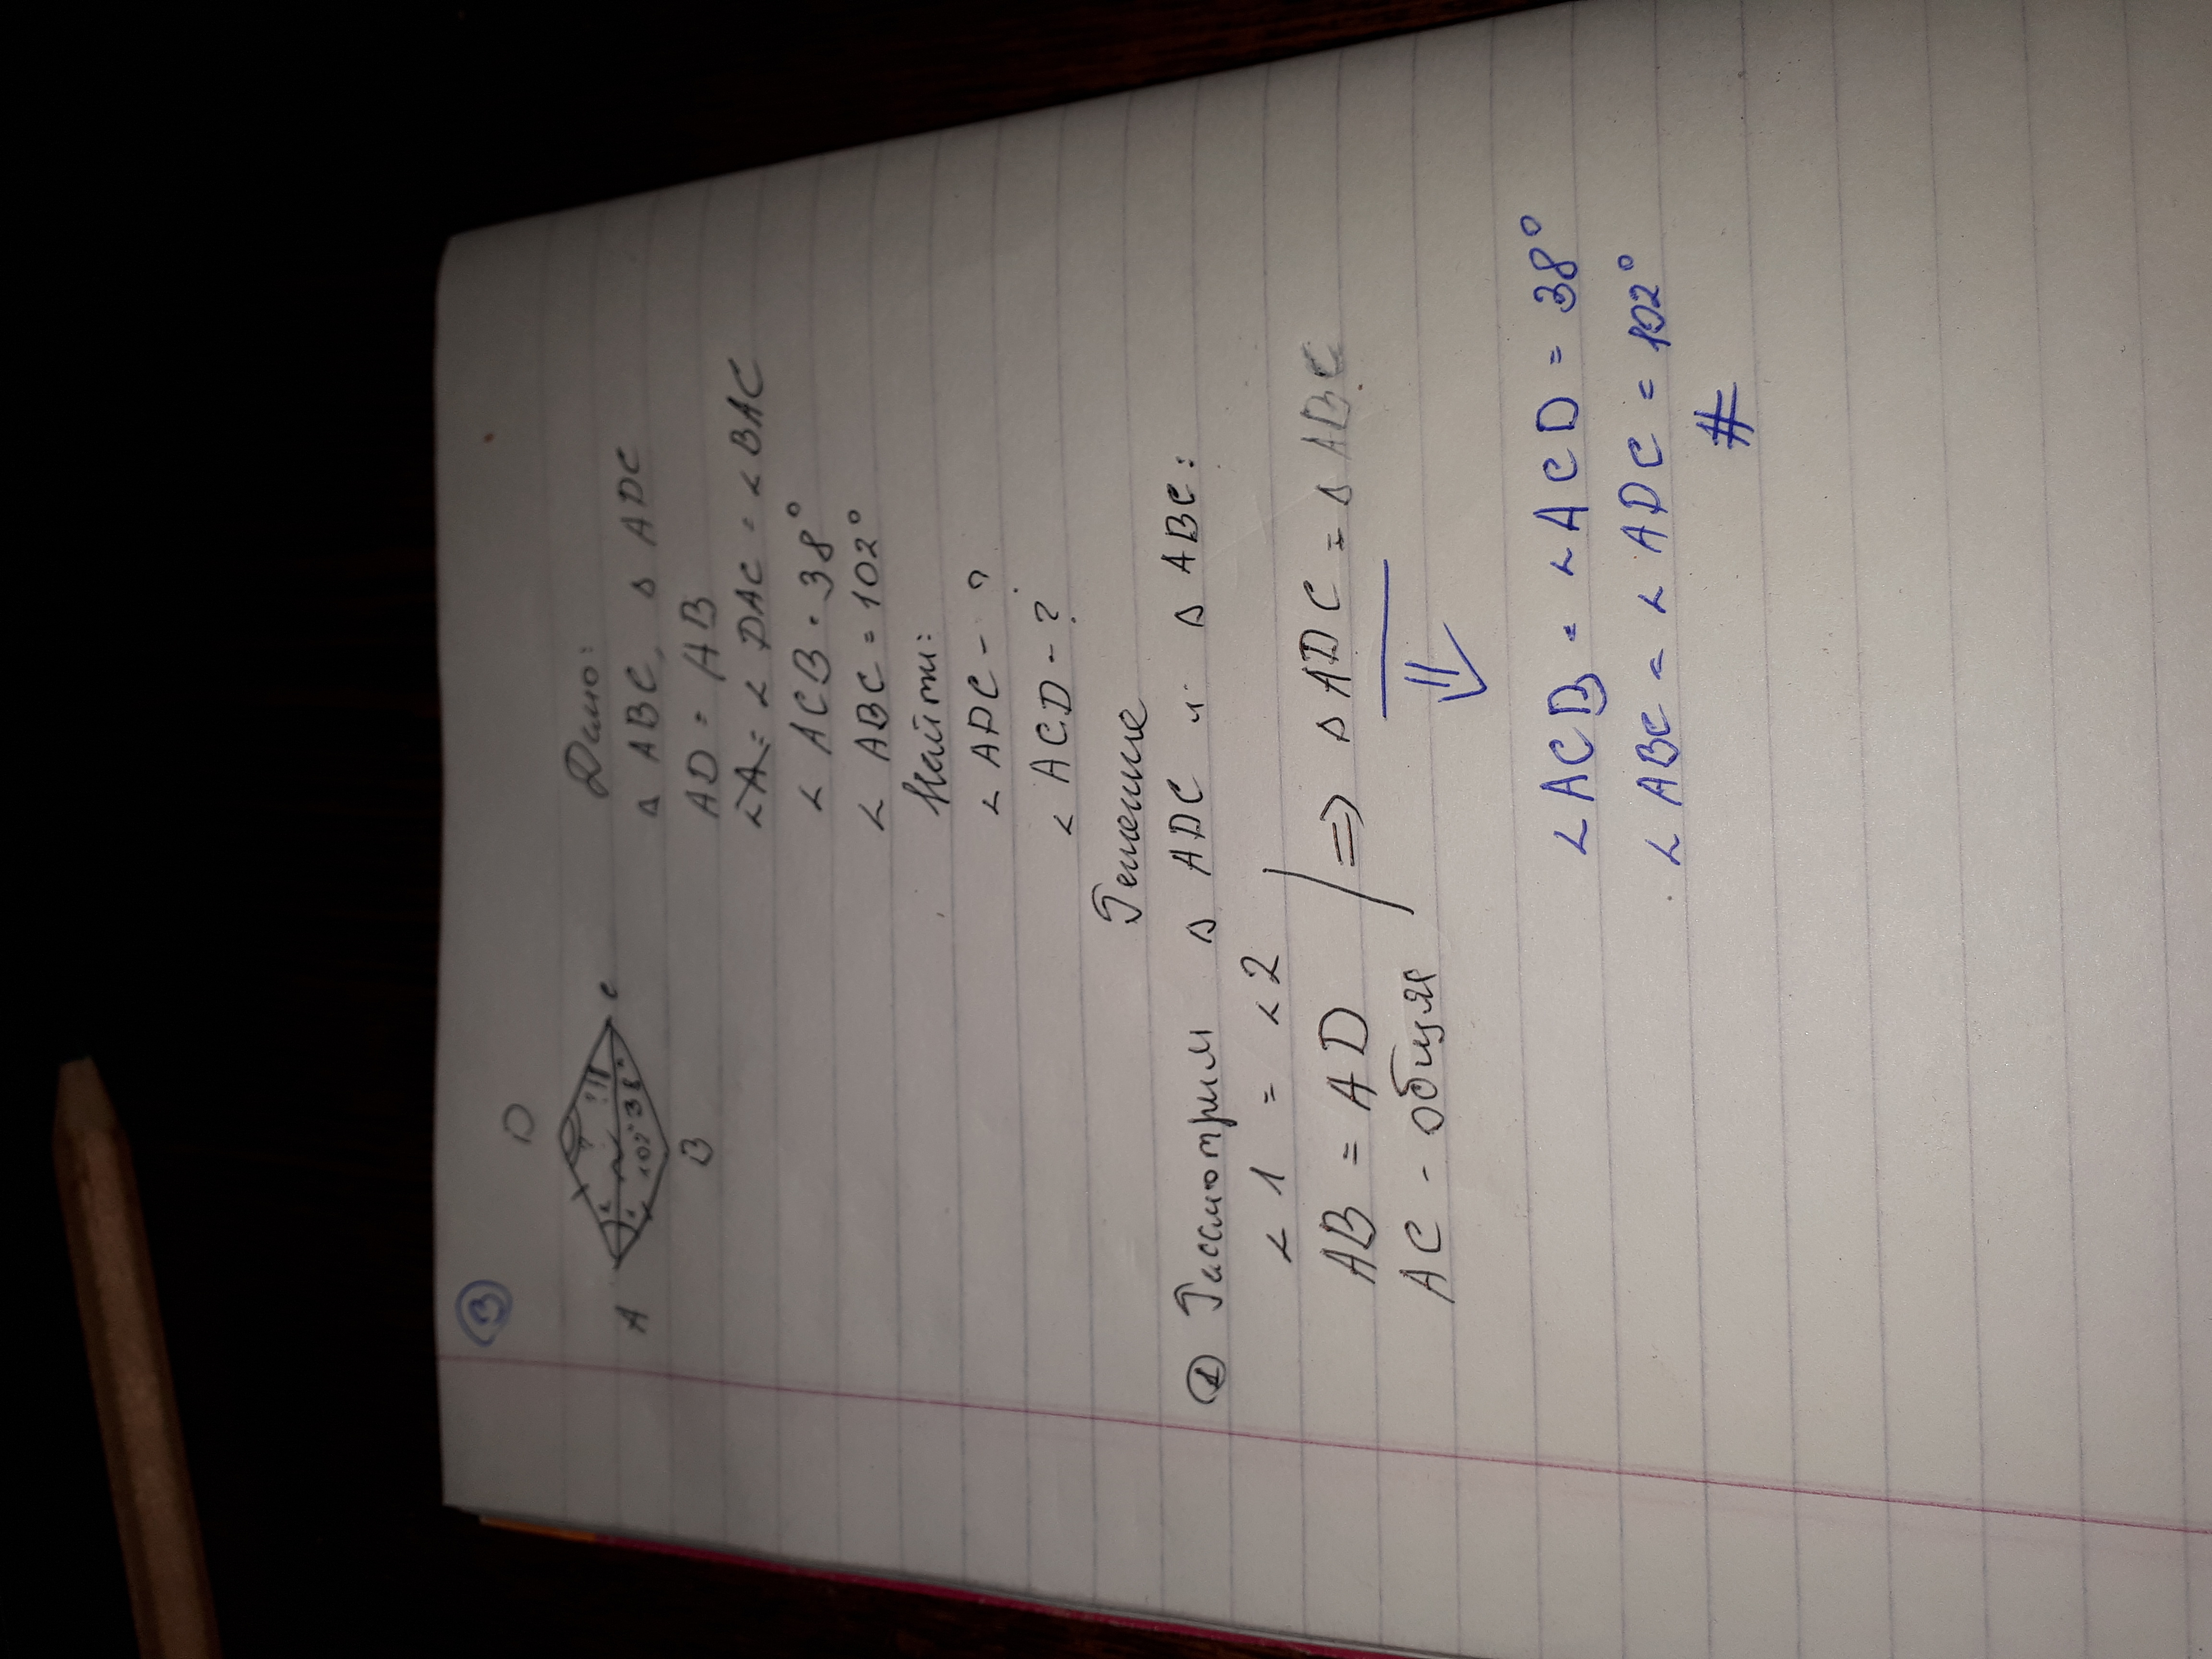 3
D
A
C
B
1
2
102° 38°
Дано:
Δ ABC, Δ ADC
AD = AB
∠A = ∠ DAC = ∠ BAC
∠ ACB = 38°
∠ ABC = 102°
Найти:
∠ ADC - ?
∠ ACD - ?
Решение
1 Рассмотрим Δ ADC и Δ ABC:
∠ 1 = ∠ 2
AB = AD
AC - общая
=> Δ ADC = Δ ABC
⇓
∠ ACB = ∠ ACD = 38°
∠ ABC = ∠ ADC = 102°
#